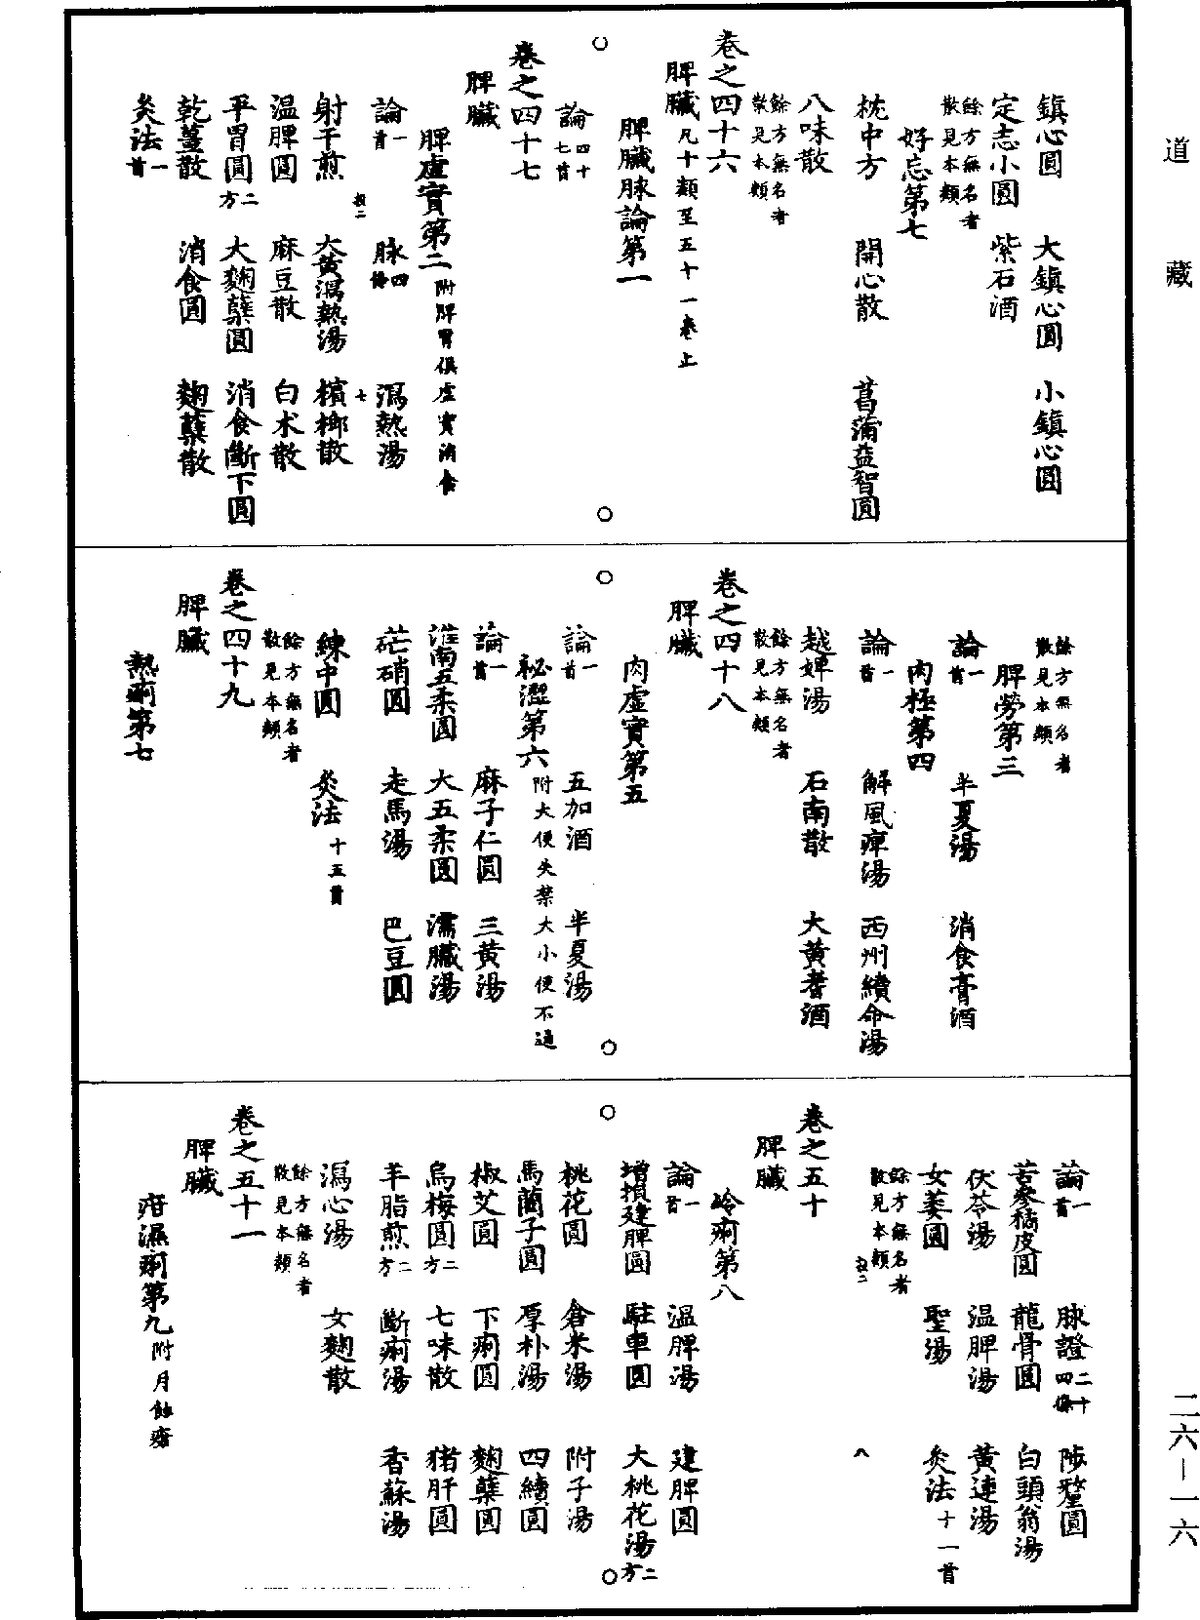 道藏
鎮心圓　大鎮心圓　小鎮心圓
定志小圓　紫石酒
餘方無名者散見本類
好忘第七
枕中方　開心散　菖蒲益智圓
八味散
餘方無名者散見本類
卷之四十六
脾臟凡十類至五十一卷止
脾臟脉論第一
論四十七首
卷之四十七
脾臟
脾虛實第二附脾胃俱虛實消食
論一首　脉四條　瀉熱湯
投二　七
射干煎　大黃瀉熱湯　檳榔散
温脾圓　麻豆散　白术散
平胃圓二方　大麴蘖圓　消食斷下圓
乾薑散　消食圓　麴蘖散
灸法一首
餘方無名者散見本類
脾勞第三
論一首　半夏湯　消食膏酒
肉極第四
論一首　解風痺湯　西州續命湯
越婢湯　石南散　大黃耆酒
餘方無名者散見本類
卷之四十八
脾臟
肉虛實第五
論一首　五加酒　半夏湯
秘澀第六附大便失禁大小便不通
論一首　麻子仁圓　三黃湯
淮南五柔圓　大五柔圓　濡臟湯
芒硝圓　走馬湯　巴豆圓
練中圓　灸法十五首
餘方無名者散見本類
卷之四十九
脾臟
熱痢第七
論一首　脉證二十四條　陟釐圓
苦參橘皮圓　龍骨圓　白頭翁湯
茯苓湯　温脾湯　黃連湯
女萎圓　聖湯　灸法十一首
餘方無名者散見本類
投二　八
卷之五十
脾臟
冷痢第八
論一首　温脾湯　建脾圓
增損建脾圓　駐車圓　大桃花湯二方
桃花圓　倉米湯　附子湯
馬藺子圓　厚朴湯　四續圓
椒艾圓　下痢圓　麴蘖圓
烏梅圓二方　七味散　猪肝圓
羊脂煎二方　斷痢湯　香蘇湯
瀉心湯　女麴散
餘方無名者散見本類
卷之五十一
脾臟
疳濕痢第九附月蝕瘡
二六—一六